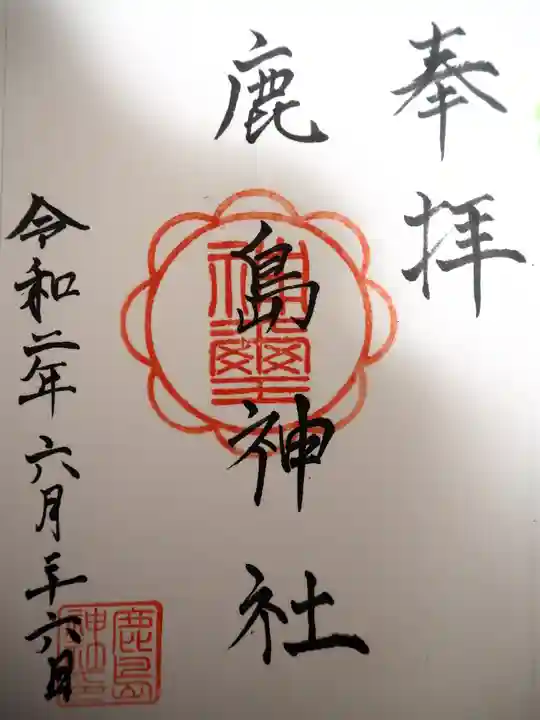 奉拝
鹿島神社
神璽
令和二年六月二十六日
鹿島
神社